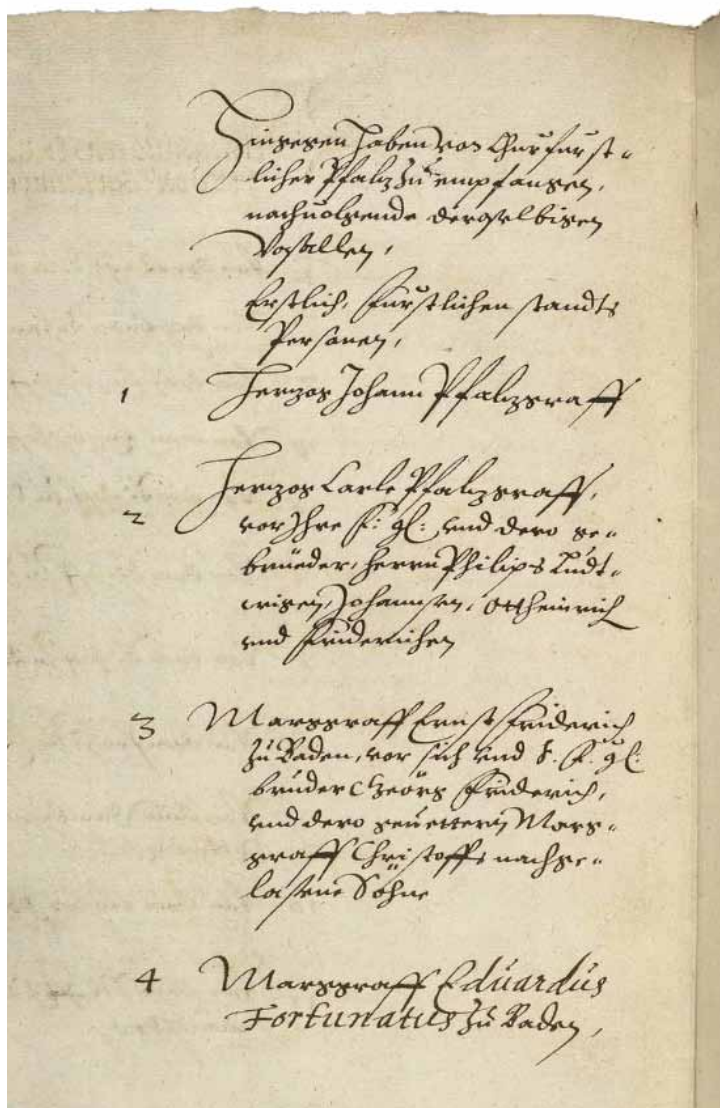 Hingegen haben von Churfürst-
licher Pfaltz zu empfangen,
nachuolgende derselbigen
Vasallen,
Erstlich, Fürstlichen standts
Personen,
1 Hertzog Johann Pfaltzgraff
Hertzog Carle Pfaltzgraff,
2 vor Ihre F: gl: vnd dero ge-
brüeder, herrn Philips Ludt-
wigen, Johannsen, Ottheinrich
vnd Friderichen
3 Marggraff Ernst Friderich
zu Baden, vor sich vnd S. F. gl:
bruder Geörg Friderich,
vnd dero geuettern Marg-
graff Christoffs nachge-
laßene Söhne
4 Marggraff Eduardus
Fortunatus zu Baden,